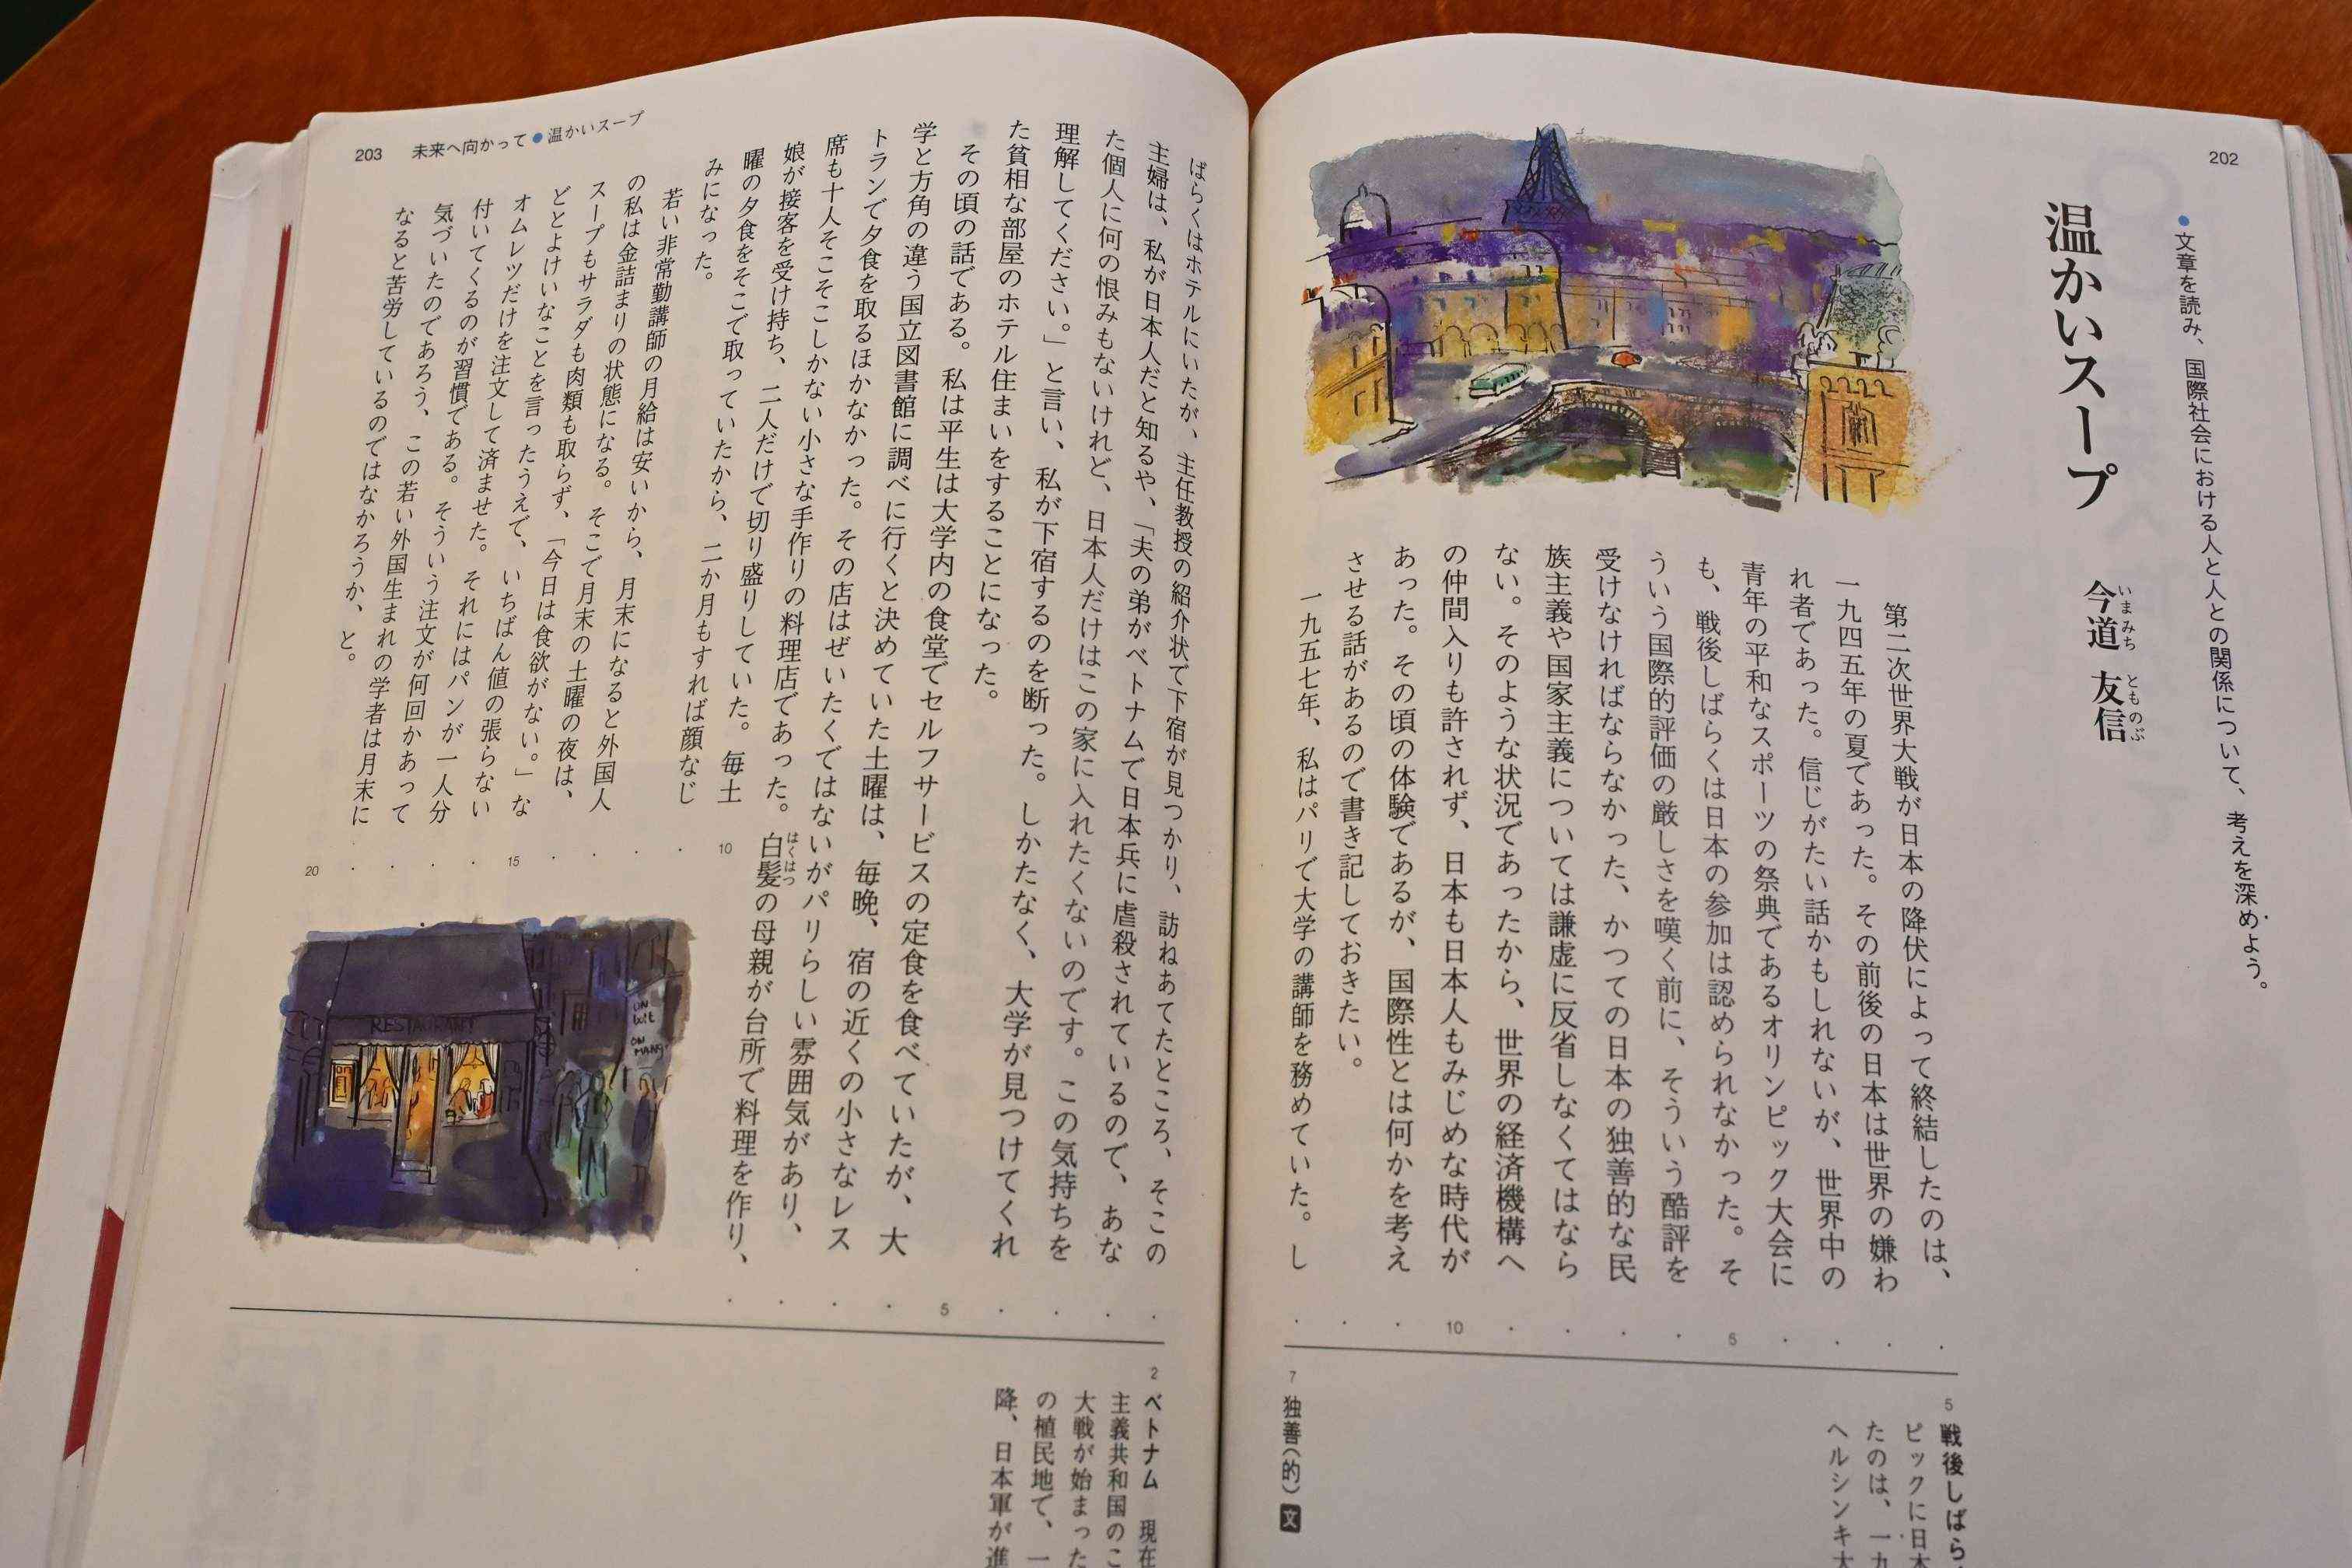 202
●文章を読み、国際社会における人と人との関係について、考えを深めよう。
温かいスープ
今道 友信
いまみち とものぶ
第二次世界大戦が日本の降伏によって終結したのは、
一九四五年の夏であった。その前後の日本は世界の嫌わ
れ者であった。信じがたい話かもしれないが、世界中の
青年の平和なスポーツの祭典であるオリンピック大会に
も、戦後しばらくは日本の参加は認められなかった。そ
ういう国際的評価の厳しさを嘆く前に、そういう酷評を
受けなければならなかった、かつての日本の独善的な民
族主義や国家主義については謙虚に反省しなくてはなら
ない。そのような状況であったから、世界の経済機構へ
の仲間入りも許されず、日本も日本人もみじめな時代が
あった。その頃の体験であるが、国際性とは何かを考え
させる話があるので書き記しておきたい。
一九五七年、私はパリで大学の講師を務めていた。し
5
10
5 戦後しばら
ピックに日本
たのは、一九
ヘルシンキ大
7 独善(的) 文
ばらくはホテルにいたが、主任教授の紹介状で下宿が見つかり、訪ねあてたところ、そこの
主婦は、私が日本人だと知るや、「夫の弟がベトナムで日本兵に虐殺されているので、あな
た個人に何の恨みもないけれど、日本人だけはこの家に入れたくないのです。この気持ちを
理解してください。」と言い、私が下宿するのを断った。しかたなく、大学が見つけてくれ
た貧相な部屋のホテル住まいをすることになった。
その頃の話である。私は平生は大学内の食堂でセルフサービスの定食を食べていたが、大
学と方角の違う国立図書館に調べに行くと決めていた土曜は、毎晩、宿の近くの小さなレス
トランで夕食を取るほかなかった。その店はぜいたくではないがパリらしい雰囲気があり、
席も十人そこそこしかない小さな手作りの料理店であった。白髪の母親が台所で料理を作り、
はくはつ
娘が接客を受け持ち、二人だけで切り盛りしていた。毎土
曜の夕食をそこで取っていたから、二か月もすれば顔なじ
みになった。
若い非常勤講師の月給は安いから、月末になると外国人
の私は金詰まりの状態になる。そこで月末の土曜の夜は、
スープもサラダも肉類も取らず、「今日は食欲がない。」な
どとよけいなことを言ったうえで、いちばん値の張らない
オムレツだけを注文して済ませた。それにはパンが一人分
付いてくるのが習慣である。そういう注文が何回かあって
気づいたのであろう、この若い外国生まれの学者は月末に
なると苦労しているのではなかろうか、と。
5
10
15
20
RESTAURANT
2 ベトナム 現在
主義共和国のこ
大戦が始まった
の植民地で、一
降、日本軍が進
203 未来へ向かって●温かいスープ